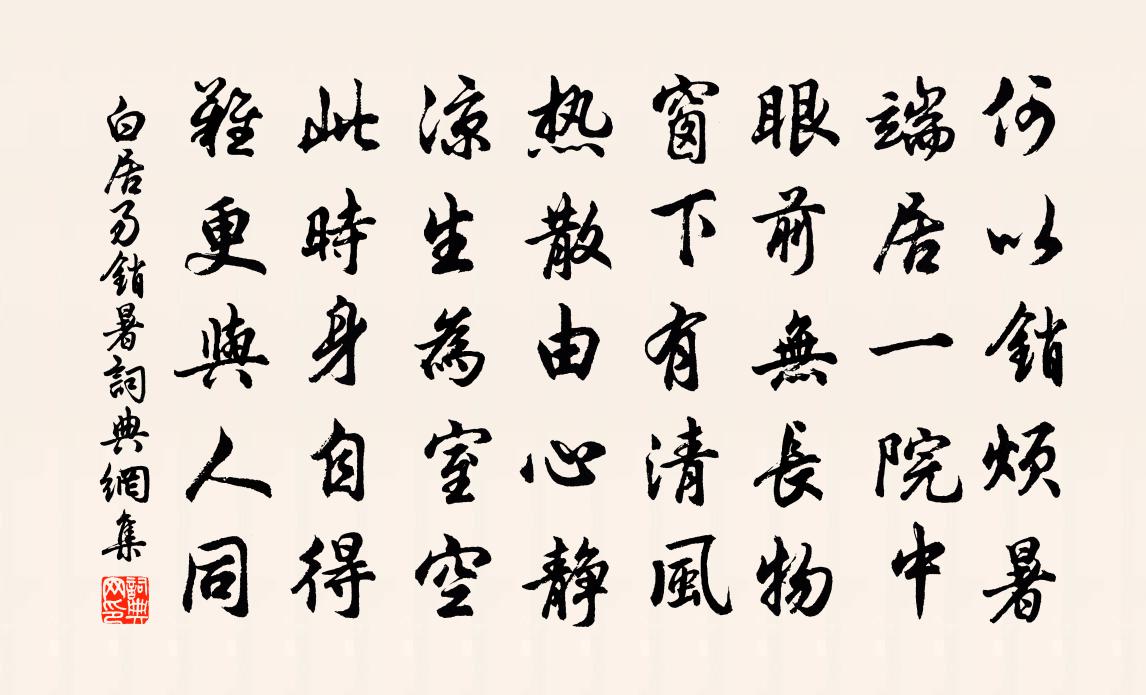 何以銷煩暑
端居一院中
眼前無長物
窗下有清風
热散由心静
涼生為室空
此時身自得
難更與人同
白居易銷暑詞典網集
詞典網印